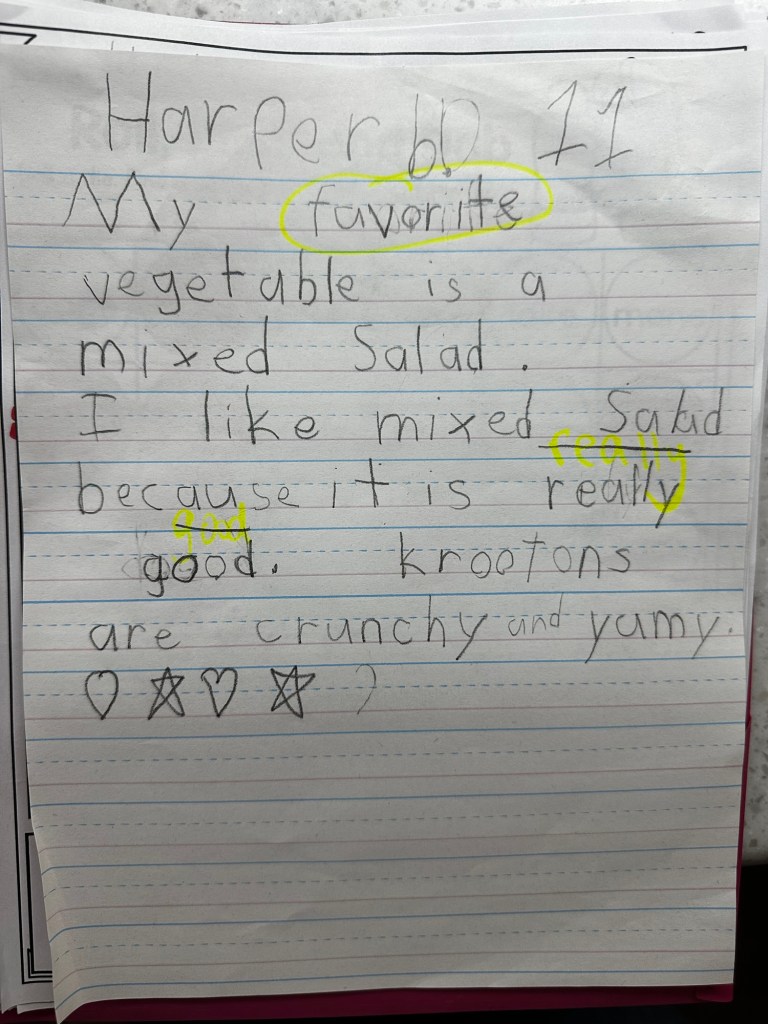 Harper bD 11
My favoriite
vegetable is a
mixed Salad.
I like mixed Salad
really
because it is really
good
good. krootons
are crunchy and yamy.